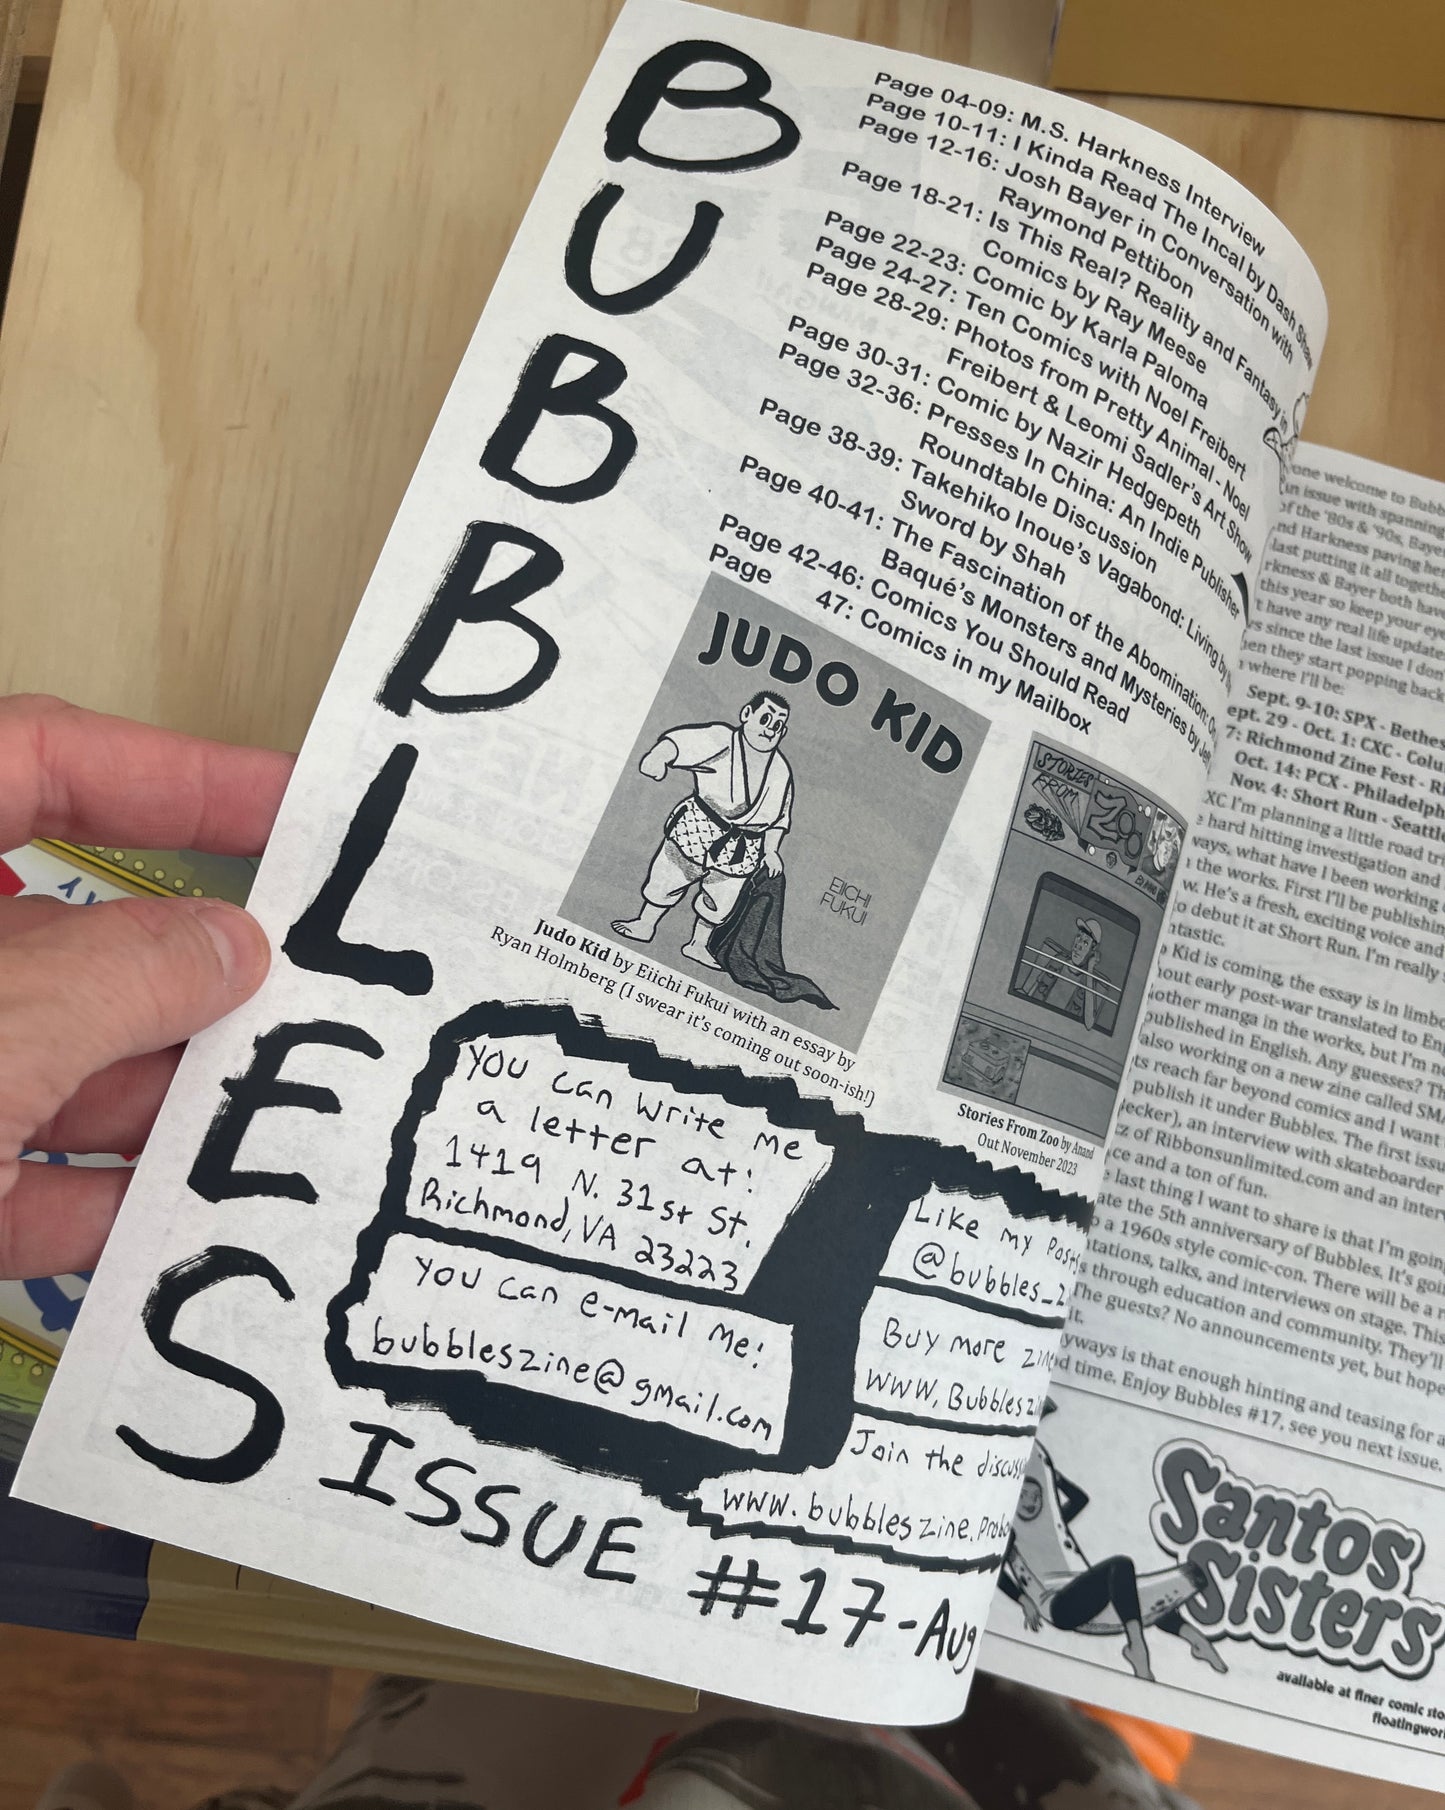 BUBBLES
Page 04-09: M.S. Harkness Interview
Page 10-11: I Kinda Read The Incal by Dash Shaw
Page 12-16: Josh Bayer in Conversation with
Raymond Pettibon
Page 18-21: Is This Real? Reality and Fantasy in
Comics by Ray Meese
Page 22-23: Comic by Karla Paloma
Page 24-27: Ten Comics with Noel Freibert
Page 28-29: Photos from Pretty Animal - Noel
Freibert & Leomi Sadler's Art Show
Page 30-31: Comic by Nazir Hedgepeth
Page 32-36: Presses In China: An Indie Publisher
Roundtable Discussion
Page 38-39: Takehiko Inoue's Vagabond: Living by
Sword by Shah
Page 40-41: The Fascination of the Abomination:
Baqué's Monsters and Mysteries by
Page 42-46: Comics You Should Read
Page 47: Comics in my Mailbox
JUDO KID
EIICHI
FUKUI
Judo Kid by Eiichi Fukui with an essay by
Ryan Holmberg (I swear it's coming out soon-ish!)
STORIES
FROM
ZOO
BY ANAND
Stories From Zoo by Anand
Out November 2023
You can write me
a letter at:
1419 N. 31st St.
Richmond, VA 23223
You can e-mail me:
bubbleszine@gmail.com
Like my posts
@bubbles_z
Buy more zine
www.Bubblesz
Join the discuss
www.bubbleszine.probo
ISSUE #17-Aug
one welcome to Bubb
an issue with spanning
of the '80s & '90s, Baye
nd Harkness paving he
last putting it all togethe
rkness & Bayer both hav
this year so keep your eye
t have any real life update
s since the last issue I don
en they start popping back
where I'll be:
Sept. 9-10: SPX - Bethes
ept. 29 - Oct. 1: CXC - Colu
7: Richmond Zine Fest - Ri
Oct. 14: PCX - Philadelph
Nov. 4: Short Run - Seattle
XC I'm planning a little road tri
hard hitting investigation and
ways, what have I been working
the works. First I'll be publishin
w. He's a fresh, exciting voice and
o debut it at Short Run. I'm really
ntastic.
Kid is coming, the essay is in limbo
out early post-war translated to En
other manga in the works, but I'm n
published in English. Any guesses? Th
also working on a new zine called SM
ts reach far beyond comics and I want
publish it under Bubbles. The first issu
ecker), an interview with skateboarder
z of Ribbonsunlimited.com and an interv
ce and a ton of fun.
last thing I want to share is that I'm going
ate the 5th anniversary of Bubbles. It's goi
a 1960s style comic-con. There will be a r
tations, talks, and interviews on stage. This
s through education and community. They'll
The guests? No announcements yet, but hope
it.
yways is that enough hinting and teasing for a
d time. Enjoy Bubbles #17, see you next issue.
Santos
Sisters
available at finer comic sto
floatingwor